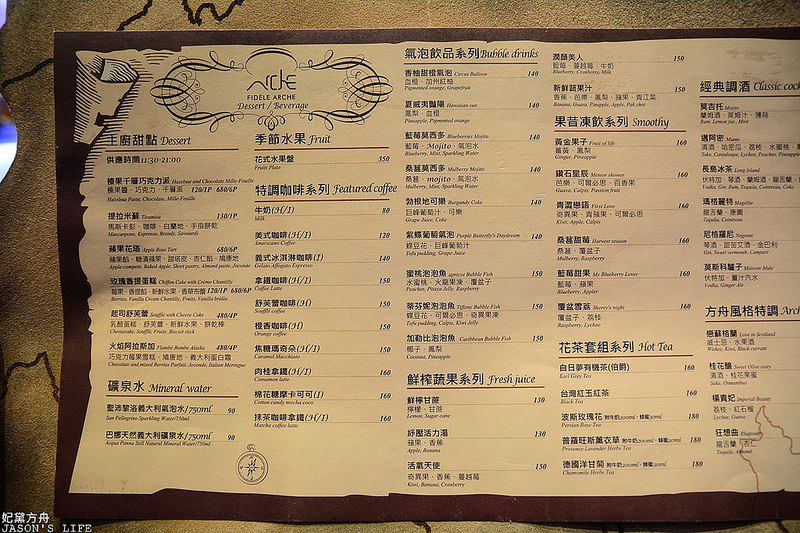 ARCHE
FIDÈLE ARCHE
Dessert / Beverage
主廚甜點 Dessert
供應時間11:30-21:00
榛果千層巧克力派 Hazelnut and Chocolate Mille-Feuille
榛果醬、巧克力、千層派 120/1P 680/6P
Hazelnut Paste, Chocolate, Mille-Feuille
提拉米蘇 Tiramisu 130/1P
馬斯卡彭、咖啡、白蘭地、手指餅乾
Mascarpone, Espresso, Brandy, Savoiardi
蘋果花塔 Apple Rose Tart 680/6P
蘋果餡、糖漬蘋果、甜塔皮、杏仁餡、鳩康地
Apple compote, Baked Apple, Short pastry, Almond paste, Joconde
玫瑰香提蛋糕 Chiffon Cake with Crème Chantilly
莓果、香提餡、新鮮水果、香草布蕾 120/1P 680/6P
Berries, Vanilla Cream Chantilly, Fruits, Vanilla brûlée
起司舒芙蕾 Soufflé with Cheese Cake 480/4P
乳酪蛋糕、舒芙蕾、新鮮水果、餅乾棒
Cheesecake, Soufflé, Fruits, Biscuit stick
火焰阿拉斯加 Flambé Bombe Alaska 480/4P
巧克力莓果雪糕、鳩康地、義大利蛋白霜
Chocolate and mixed Berries Parfait, Joconde, Italian Meringue
礦泉水 Mineral water
聖沛黎洛義大利氣泡水/750ml 90
San Pellegrino Sparkling Water/750ml
巴娜天然義大利礦泉水/750ml 90
Acqua Panna Still Natural Mineral Water/750ml
季節水果 Fruit
花式水果盤 350
Fruits Plate
特調咖啡系列 Featured coffee
牛奶(H/I) 80
Milk
美式咖啡(H/I) 120
Americano Coffee
義式冰淇淋咖啡(I) 140
Gelato Affogato Espresso
拿鐵咖啡(H/I) 150
Coffee Latte
舒芙蕾咖啡(H) 150
Soufflé coffee
橙香咖啡(H) 150
Orange coffee
焦糖瑪奇朵(H/I) 150
Caramel Macchiato
肉桂拿鐵(H/I) 160
Cinnamon latte
棉花糖摩卡可可(I) 160
Cotton candy mocha coco
抹茶咖啡拿鐵(H/I) 160
Matcha coffee latte
氣泡飲品系列 Bubble drinks
香柚甜橙氣泡 Circus Balloon 140
血橙、加州紅柚
Pigmented orange, Grapefruit
夏威夷豔陽 Hawaiian sun 140
鳳梨、血橙
Pineapple, Pigmented orange
藍莓莫西多 Blueberries Mojito 140
藍莓、Mojito、氣泡水
Blueberry, Mint, Sparkling Water
桑葚莫西多 Mulberry Mojito 140
桑葚、mojito、氣泡水
Mulberry, Mint, Sparkling Water
勃根地可樂 Burgundy Coke 140
巨峰葡萄汁、可樂
Grape Juice, Coke
紫蝶葡萄氣泡 Purple Butterfly's Daydream 140
蝶豆花、巨峰葡萄汁
Tofu pudding, Grape Juice
蜜桃泡泡魚 apricot Bubble Fish 150
水蜜桃、火龍果凍、覆盆子
Peaches, Pitaya Jelly, Raspberry
蒂芬妮泡泡魚 Tiffany Bubble Fish 150
蝶豆花、可爾必思、奇異果凍
Tofu pudding, Calpis, Kiwi Jelly
加勒比泡泡魚 Caribbean Bubble Fish 150
椰子、鳳梨
Coconut, Pineapple
鮮榨蔬果系列 Fresh juice
鮮檸甘蔗 130
檸檬、甘蔗
Lemon, Sugar cane
紓壓活力湯 130
蘋果、香蕉
Apple, Banana
活氧天使 150
奇異果、香蕉、蔓越莓
Kiwi, Banana, Cranberry
潤顏美人 150
藍莓、蔓越莓、牛奶
Blueberry, Cranberry, Milk
新鮮蔬果汁 150
香蕉、芭樂、鳳梨、蘋果、青江菜
Banana, Guava, Pinapple, Apple, Pak choi
果昔凍飲系列 Smoothy
黃金果子 Fruit of life 160
薑黃、鳳梨
Ginger, Pineapple
鑽石星辰 Meteor shower 160
芭樂、可爾必思、百香果
Guava, Calpis, Passion fruit
青澀戀語 First Love 160
奇異果、青蘋果、可爾必思
Kiwi, Apple, Calpis
桑葚甜莓 Harvest season 160
桑葚、覆盆子
Mulberry, Raspberry
藍莓甜果 My Blueberry Lover 160
藍莓、蘋果
Blueberry, Appler
覆盆雪荔 Sherry's night 160
覆盆子、荔枝
Raspberry, Lychee
花茶套組系列 Hot Tea
白日夢有機茶(伯爵) 160
Earl Grey Tea
台灣紅玉紅茶 160
Black Tea
波斯玫瑰花 附牛奶200ml、蜂蜜30ml 180
Persian Rose Tea
普羅旺斯薰衣草 附牛奶200ml、蜂蜜30ml 180
Provence Lavender Herbs Tea
德國洋甘菊 附牛奶200ml、蜂蜜30ml 180
Chamomile Herbs Tea
經典調酒 Classic cock
莫吉托 Mojito
蘭姆酒、萊姆汁、薄荷
Rum, Lemon Jus, Mint
邁阿密 Miami
清酒、哈密瓜、荔枝、水蜜桃、鳳
Sake, Cantaloupe, Lychee, Peaches, Pineapple
長島冰茶 Long Island
伏特加、琴酒、蘭姆酒、龍舌蘭、
Vodka, Gin, Rum, Tequila, Cointreau, Coke
瑪格麗特 Magolite
龍舌蘭、康圖
Tequila, Cointreau
尼格羅尼 Negroni
琴酒、甜苦艾酒、金巴利
Gin, Sweet vermouth, Campari
莫斯科驢子 Moscow Mule
伏特加、薑汁汽水
Vodka, Ginger Ale
方舟風格特調 Arch
戀蘇格蘭 Love in Scotland
威士忌、水果酒
Wiskey, Kiwi, Black currant
桂花釀 Sweet Olive story
清酒、桂花果蜜
Sake, Osmanthus
楊貴妃 Imperial Beauty
荔枝、紅石榴
Lychee, Guava
狂想曲 Rhapsody
龍舌蘭、杏仁
Tequila, Almond
妃黛方舟
JASON'S LIFE